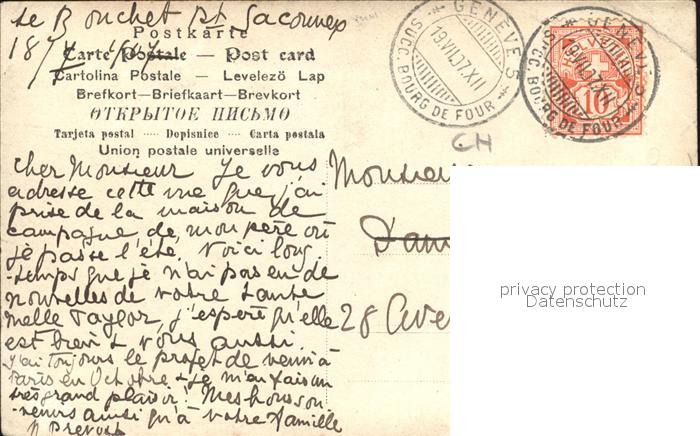 Le Bouchet Pt Saconnex
18/7 1907
Postkarte
Carte Postale — Post card
Cartolina Postale — Levelező Lap
Brefkort—Briefkaart—Brevkort
ОТКРЫТОЕ ПИСЬМО
Tarjeta postal ···· Dopisnice ···· Carta postala
Union postale universelle
GENÈVE 5
19.VII.07.XII
SUCC. BOURG DE FOUR
GENÈVE 5
19.VII.07.XII
SUCC. BOURG DE FOUR
10
CH
Cher Monsieur Je vous
adresse cette vue que j'ai
prise de la maison de
campagne de mon père où
je passe l'été. Voici long-
temps que je n'ai pas eu de
nouvelles de votre tante
Melle Taylor, j'espère qu'elle
est bien & vous aussi.
J'ai toujours le projet de venir à
Paris en Octobre & je m'en fais un
très grand plaisir! Mes bons sou-
venirs ainsi qu'à votre famille
Prevost
Monsieur
28 Ave
privacy protection
Datenschutz